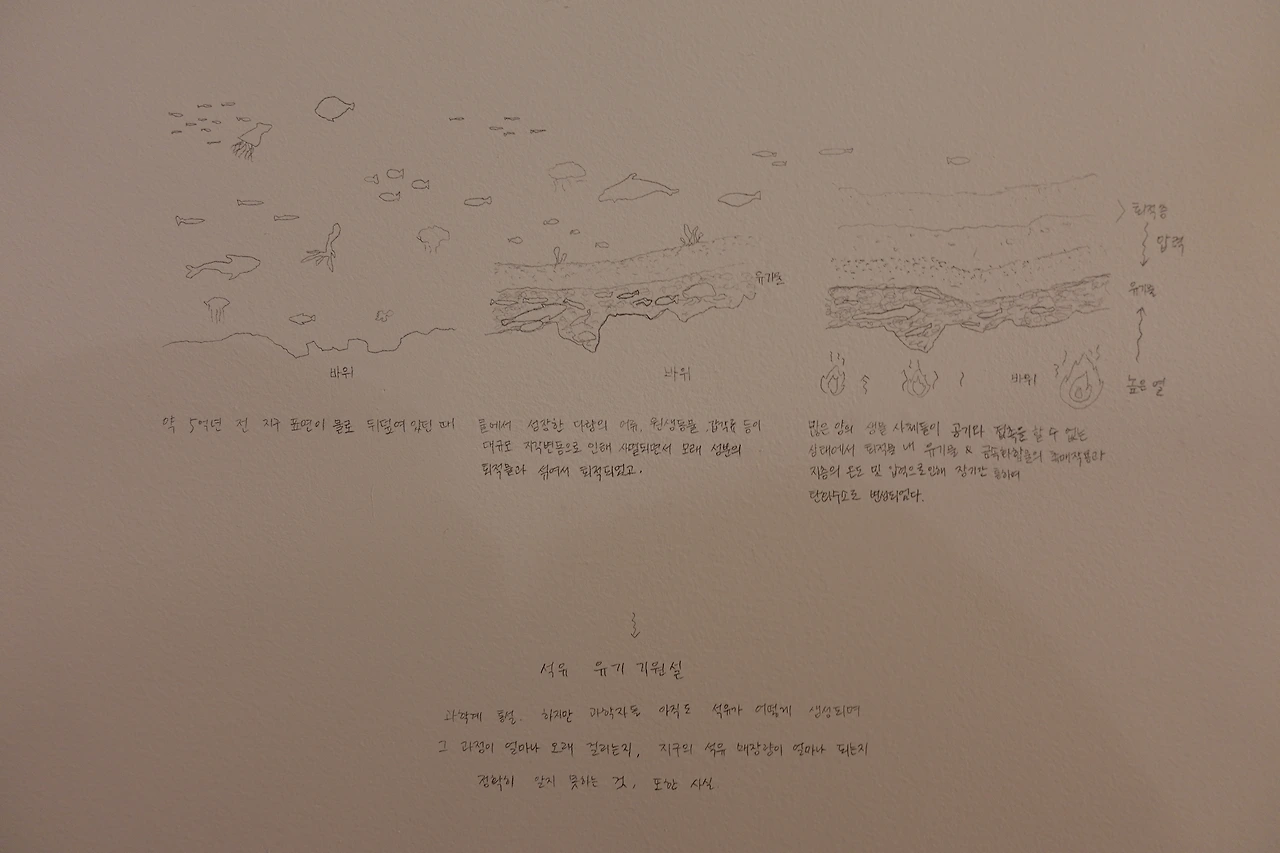 퇴적층
압력
유기물
유기물
높은 열
바위
바위
바위
약 5억년 전 지구 표면이 물로 뒤덮여 있던 때
물에서 성장한 다량의 어류, 원생동물, 갑각류 등이
대규모 지각변동으로 인해 사멸되면서 모래 성분의
퇴적물과 섞여서 퇴적되었고.
많은 양의 생물 사체들이 공기와 접촉을 할 수 없는
상태에서 퇴적층 내 유기물 & 금속화합물의 촉매작용과
지층의 온도 및 압력으로인해 장기간 통하여
탄화수소로 변성되었다.
석유 유기 기원설
과학계 통설. 하지만 과학자들 아직도 석유가 어떻게 생성되며
그 과정이 얼마나 오래 걸리는지, 지구의 석유 매장량이 얼마나 되는지
정확히 알지 못하는 것, 또한 사실